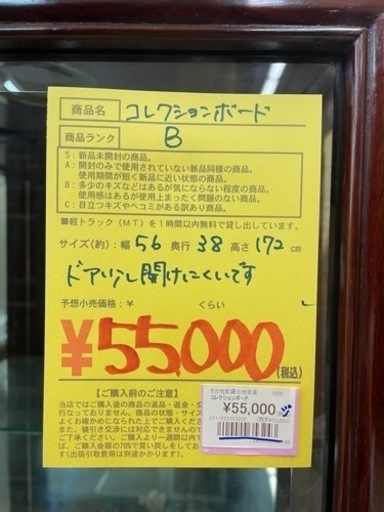 商品名 コレクションボード
商品ランク B
S：新品未開封の商品。
A：開封のみで使用されていない新品同様の商品。
使用期間が短く新品に近い状態の商品。
B：多少のキズなどはあるが気にならない程度の商品。
使用感はあるが使用上まったく問題のない商品。
C：目立つキズやヘコミがある訳あり商品。
■軽トラック（MT）を1時間以内無料で貸し出しています。
サイズ(約)：幅 56 奥行 38 高さ 172 cm
ドア少し開けにくいです
予想小売価格：¥ くらい
¥55,000(税込)
【ご購入前のご注意】
当店ではご購入後の商品の返品・返金・交
行なっておりません。商品の状態・サイズ
よくお確かめになられた上でご購入くださ
また、値引き交渉には対応できませんので
ご了承くださいませ。ご購入より一週間以内で
ば、ご購入金額の70%で買い戻しをしており
(出張引取費用は別途かかります)。
コレクションボード
¥55,000